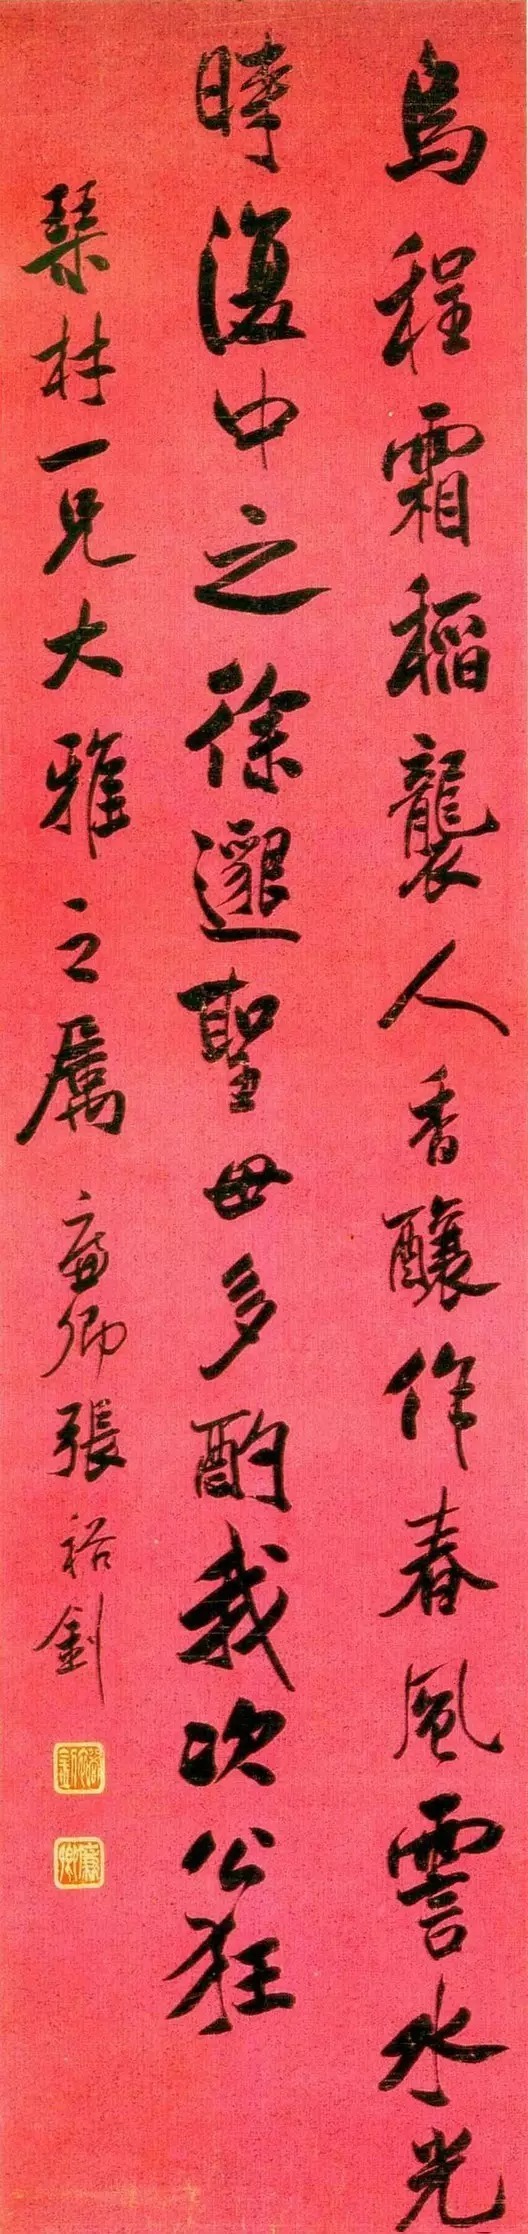 烏程霜稻襲人香釀作春風霅水光
時復中之徐邈聖毋多酌我次公狂
琹材一兄大雅之屬 廉卿張裕釗